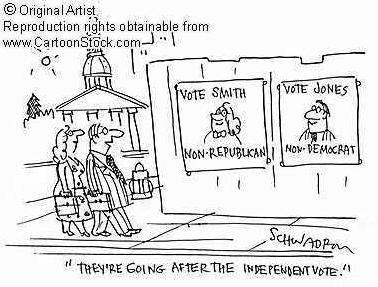 © Original Artist
Reproduction rights obtainable from
www.CartoonStock.com
VOTE SMITH
NON-REPUBLICAN
VOTE JONES
NON-DEMOCRAT
SCHWADRON
"THEY'RE GOING AFTER THE INDEPENDENT VOTE."